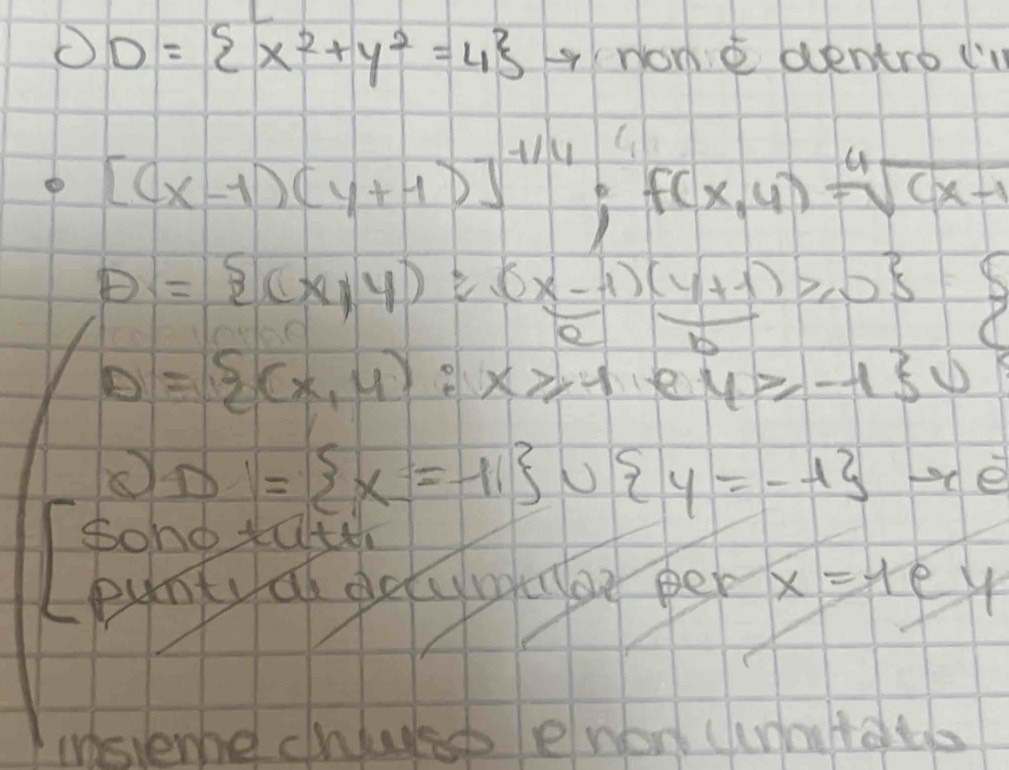 ∂D = {x² + y² = 4} → non è dentro l'in
• [(x-1)(y+1)]^1/4 ; f(x,y) = ⁴√(x-1
D = {(x,y) : (x-1)(y+1) ≥ 0} {
a b
D = {(x,y) : x ≥ 1 e y ≥ -1} ∪
∂D = {x = 1} ∪ {y = -1} → è
Sono tutti
punti di accumulaz per x = 1 e y
insieme chiuso e non limitato